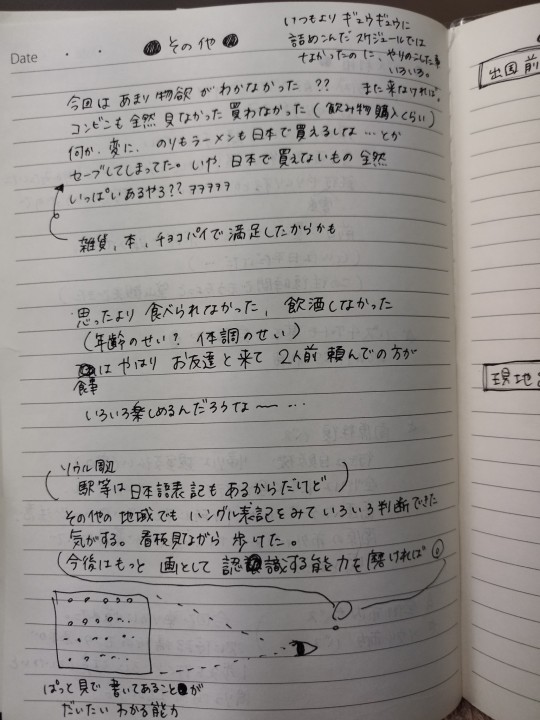 Date
その他
いつもより ギュウギュウに
詰めこんだスケジュールでは
なかったのに、やりのこした事
いろいろ。
また来なければ。
今回は あまり 物欲 が わかなかった ??
コンビニも 全然 見なかった 買わなかった (飲み物 購入くらい)
何か、変に、のりもラーメンも日本で買えるしな … とか
セーブしてしまってた。いや、日本で買えないもの 全然
いっぱいあるやろ?? ㅋㅋㅋㅋㅋ
雑貨、本、チョコパイで満足したからかも
思ったより 食べられなかった、飲酒しなかった
(年齢のせい? 体調のせい)
食事は やはり お友達と来て 2人前 頼んでの方が
いろいろ楽しめるんだろうな〜 …
(ソウル周辺
駅等は日本語表記もあるからだけど)
その他の地域でも ハングル表記をみていろいろ判断できた
気がする。看板見ながら 歩けた。
今後はもっと 画として 認識する能力を磨ければ◎
ぱっと見で 書いてあることが
だいたい わかる能力
出国前
現地